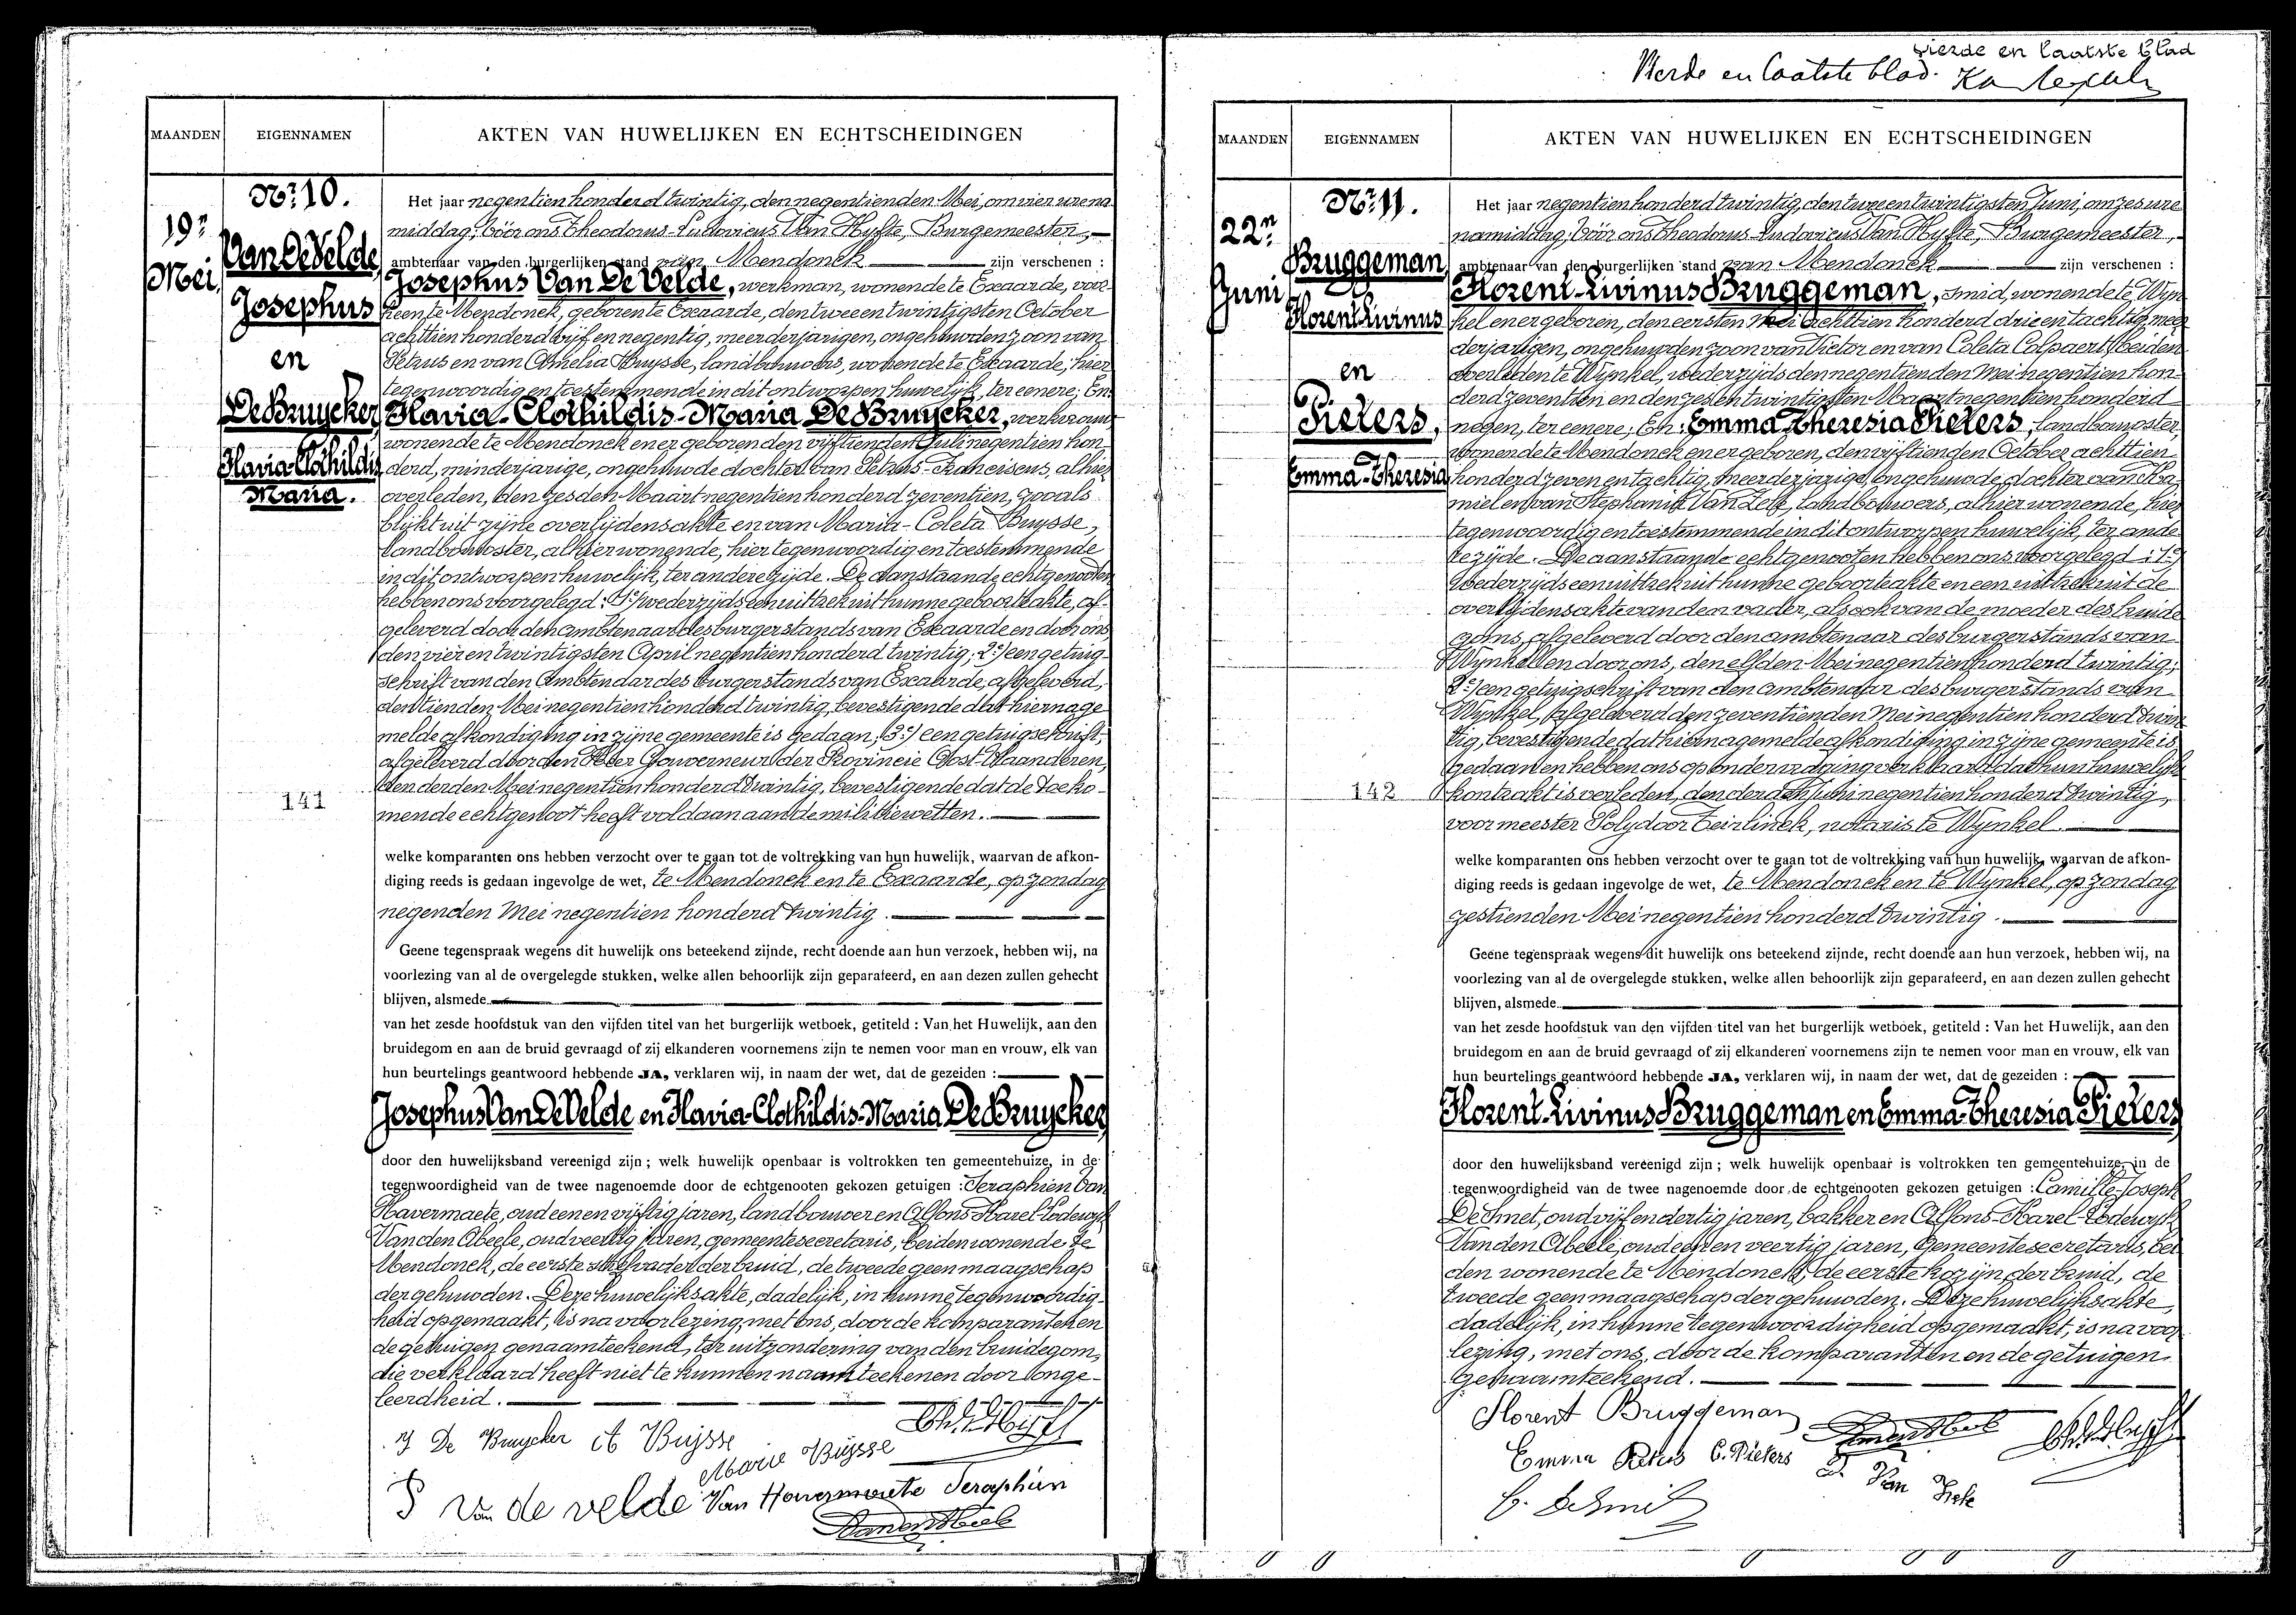 MAANDEN EIGENNAMEN AKTEN VAN HUWELIJKEN EN ECHTSCHEIDINGEN
Nr 10.
19n
Mei
Van De Velde
Josephus
en
De Bruycker
Flavia-Clothildis
Maria.
141
Het jaar negentien honderd twintig, den negentienden Mei, om vier ure na
middag, vóór ons Theodorus-Ludovicus Van Hyfte, Burgemeester,
ambtenaar van den burgerlijken stand van Mendonck zijn verschenen :
Josephus Van De Velde, werkman, wonende te Exaarde, voor
heen te Mendonck, geboren te Exaarde, den twee en twintigsten October
achttien honderd vijf en negentig, meerderjarigen, ongehuwden zoon van
Petrus en van Amelia Buysse, landbouwers, wonende te Exaarde, hier
tegenwoordig en toestemmende in dit ontworpen huwelijk, ter eenere; En
Flavia-Clothildis-Maria De Bruycker, werkvrouw
wonende te Mendonck en er geboren den vijftienden Juli negentien hon-
derd, minderjarige, ongehuwde dochter van Petrus-Franciscus, alhier
overleden, den zesden Maart negentien honderd zeventien, zooals
blijkt uit zijne overlijdensakte en van Maria-Coleta Buysse,
landbouwster, alhier wonende, hier tegenwoordig en toestemmende
in dit ontworpen huwelijk, ter andere zijde. De aanstaande echtgenooten
hebben ons voorgelegd: 1º/ wederzijds een uittrek uit hunne geboorteakte, af-
geleverd door den ambtenaar des burgerstands van Exaarde en door ons,
den vier en twintigsten April negentien honderd twintig; 2º/ een getuig-
schrift van den Ambtenaar des burgerstands van Exaarde, afgeleverd,
den tienden Mei negentien honderd twintig, bevestigende dat hierna ge
melde afkondiging in zijne gemeente is gedaan; 3º/ een getuigschrift,
afgeleverd door den Heer Gouverneur der Provincie Oost-Vlaanderen,
den derden Mei negentien honderd twintig, bevestigende dat de toeko-
mende echtgenoot heeft voldaan aan de militiewetten.
welke komparanten ons hebben verzocht over te gaan tot de voltrekking van hun huwelijk, waarvan de afkon-
diging reeds is gedaan ingevolge de wet, te Mendonck en te Exaarde, op zondag
negenden Mei negentien honderd twintig.
Geene tegenspraak wegens dit huwelijk ons beteekend zijnde, recht doende aan hun verzoek, hebben wij, na
voorlezing van al de overgelegde stukken, welke allen behoorlijk zijn geparafeerd, en aan dezen zullen gehecht
blijven, alsmede
van het zesde hoofdstuk van den vijfden titel van het burgerlijk wetboek, getiteld : Van het Huwelijk, aan den
bruidegom en aan de bruid gevraagd of zij elkanderen voornemens zijn te nemen voor man en vrouw, elk van
hun beurtelings geantwoord hebbende JA, verklaren wij, in naam der wet, dat de gezeiden :
Josephus Van De Velde en Flavia-Clothildis-Maria De Bruycker
door den huwelijksband vereenigd zijn ; welk huwelijk openbaar is voltrokken ten gemeentehuize, in de
tegenwoordigheid van de twee nagenoemde door de echtgenooten gekozen getuigen : Seraphien Van
Havermaete, oud een en vijftig jaren, landbouwer en Alfons-Karel-Lodewyk
Van den Abeele, oud veertig jaren, gemeentesecretaris, beiden wonende te
Mendonck, de eerste stiefvader der bruid, de tweede geen maagschap
der gehuwden. Deze huwelijksakte, dadelijk, in hunne tegenwoordig-
heid opgemaakt, is na voorlezing, met ons, door de komparanten en
de getuigen genaamteekend, ter uitzondering van den bruidegom,
die verklaard heeft niet te kunnen naamteekenen door onge-
leerdheid.
De Bruycker A Buysse
Marie Buysse
P Van de velde Van Havermaete Seraphien
vierde en laatste blad
Vierde en laatste blad.
MAANDEN EIGENNAMEN AKTEN VAN HUWELIJKEN EN ECHTSCHEIDINGEN
Nr 11.
22n
Juni
Bruggeman
Florent-Livinus
en
Pieters,
Emma-Theresia
142
Het jaar negentien honderd twintig, den twee en twintigsten Juni, om zes ure
namiddag, vóór ons Theodorus-Ludovicus Van Hyfte, Burgemeester,
ambtenaar van den burgerlijken stand van Mendonck zijn verschenen :
Florent-Livinus Bruggeman, smid, wonende te Wyn
kel en er geboren, den eersten Mei achttien honderd drie en tachtig, meer
derjarigen, ongehuwden zoon van Victor en van Coleta Colpaert, beiden
overleden te Wynkel, wederzijds den negentienden Mei negentien hon-
derd zeventien en den zes en twintigsten Maart negentien honderd
negen, ter eenere; En: Emma Theresia Pieters, landbouwster,
wonende te Mendonck en er geboren, den vijftienden October achttien
honderd zeven en tachtig, meerderjarige, ongehuwde dochter van Ka
miel en van Stephania Van Zele, landbouwers, alhier wonende, hier
tegenwoordig en toestemmende in dit ontworpen huwelijk, ter ande
re zijde. De aanstaande echtgenooten hebben ons voorgelegd: 1º/
wederzijds een uittrek uit hunne geboorteakte en een uittrek uit de
overlijdensakte van den vader, alsook van de moeder des bruide
goms, afgeleverd door den ambtenaar des burgerstands van
Wynkel en door ons, den elfden Mei negentien honderd twintig;
2º/ een getuigschrift van den ambtenaar des burgerstands van
Wynkel, afgeleverd den zeventienden Mei negentien honderd twin
tig, bevestigende dat hierna gemelde afkondiging in zijne gemeente is
gedaan en hebben ons op ondervraging verklaard dat hun huwelijk
kontrakt is verleden, den derden Juni negentien honderd twintig,
voor meester Polydoor Teirlinck, notaris te Wynkel.
welke komparanten ons hebben verzocht over te gaan tot de voltrekking van hun huwelijk, waarvan de afkon-
diging reeds is gedaan ingevolge de wet, te Mendonck en te Wynkel, op zondag
zestienden Mei negentien honderd twintig.
Geene tegenspraak wegens dit huwelijk ons beteekend zijnde, recht doende aan hun verzoek, hebben wij, na
voorlezing van al de overgelegde stukken, welke allen behoorlijk zijn geparafeerd, en aan dezen zullen gehecht
blijven, alsmede
van het zesde hoofdstuk van den vijfden titel van het burgerlijk wetboek, getiteld : Van het Huwelijk, aan den
bruidegom en aan de bruid gevraagd of zij elkanderen voornemens zijn te nemen voor man en vrouw, elk van
hun beurtelings geantwoord hebbende JA, verklaren wij, in naam der wet, dat de gezeiden :
Florent-Livinus Bruggeman en Emma-Theresia Pieters
door den huwelijksband vereenigd zijn ; welk huwelijk openbaar is voltrokken ten gemeentehuize, in de
tegenwoordigheid van de twee nagenoemde door de echtgenooten gekozen getuigen : Camille-Joseph
De Smet, oud vijf en dertig jaren, bakker en Alfons-Karel-Lodewyk
Van den Abeele, oud een en veertig jaren, Gemeentesecretaris, bei
den wonende te Mendonck, de eerste kozijn der bruid, de
tweede geen maagschap der gehuwden. Deze huwelijksakte,
dadelijk, in hunne tegenwoordigheid opgemaakt, is na voor
lezing, met ons, door de komparanten en de getuigen
genaamteekend.
Florent Bruggeman
Emma Pieters C. Pieters S. Van Zele
C. De Smet